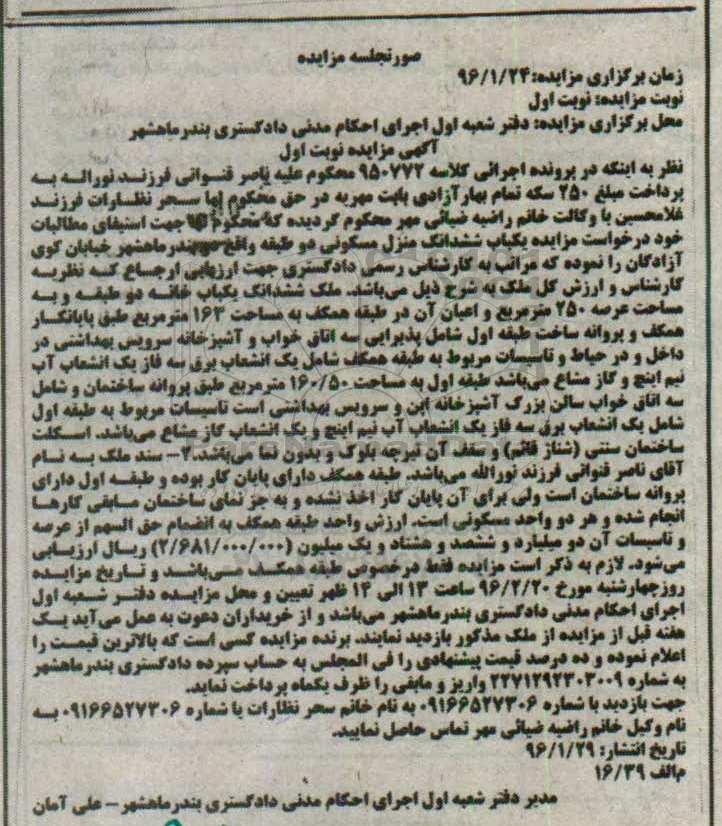 صورتجلسه مزایده
زمان برگزاری مزایده:۹۶/۱/۲۴
نوبت مزایده: نوبت اول
محل برگزاری مزایده: دفتر شعبه اول اجرای احکام مدنی دادگستری بندرماهشهر
آگهی مزایده نوبت اول
نظر به اینکه در پرونده اجرائی کلاسه ۹۵۰۷۷۲ محکوم علیه ناصر قنواتی فرزند نوراله به
پرداخت مبلغ ۲۵۰ سکه تمام بهار آزادی بابت مهریه در حق محکوم لها سحر نظارات فرزند
غلامحسین با وکالت خانم راضیه ضیائی مهر محکوم گردیده که محکوم لها جهت استیفای مطالبات
خود درخواست مزایده یکباب ششدانگ منزل مسکونی دو طبقه واقع در بندرماهشهر خیابان کوی
آزادگان را نموده که مراتب به کارشناس رسمی دادگستری جهت ارزیابی ارجاع که نظریه
کارشناس و ارزش کل ملک به شرح ذیل می‌باشد. ملک ششدانگ یکباب خانه دو طبقه و به
مساحت عرصه ۲۵۰ مترمربع و اعیان آن در طبقه همکف به مساحت ۱۶۳ مترمربع طبق پایانکار
همکف و پروانه ساخت طبقه اول شامل پذیرایی سه اتاق خواب و آشپزخانه سرویس بهداشتی در
داخل و در حیاط و تاسیسات مربوط به طبقه همکف شامل یک انشعاب برق سه فاز یک انشعاب آب
نیم اینچ و گاز مشاع می‌باشد طبقه اول به مساحت ۱۶۰/۵۰ مترمربع طبق پروانه ساختمان و شامل
سه اتاق خواب سالن بزرگ آشپزخانه اپن و سرویس بهداشتی است تاسیسات مربوط به طبقه اول
شامل یک انشعاب برق سه فاز یک انشعاب آب نیم اینچ و یک انشعاب گاز مشاع می‌باشد. اسکلت
ساختمان سنتی (شناژ قائم) و سقف آن تیرچه بلوک و بدون نما می‌باشد.۲- سند ملک به نام
آقای ناصر قنواتی فرزند نورالله می‌باشد. طبقه همکف دارای پایان کار بوده و طبقه اول دارای
پروانه ساختمان است ولی برای آن پایان کار اخذ نشده و به جز نمای ساختمان مابقی کارها
انجام شده و هر دو واحد مسکونی است. ارزش واحد طبقه همکف به انضمام حق السهم از عرصه
و تاسیسات آن دو میلیارد و ششصد و هشتاد و یک میلیون (۲/۶۸۱/۰۰۰/۰۰۰) ریال ارزیابی
می‌شود. لازم به ذکر است مزایده فقط درخصوص طبقه همکف می‌باشد و تاریخ مزایده
روزچهارشنبه مورخ ۹۶/۲/۲۰ ساعت ۱۳ الی ۱۴ ظهر تعیین و محل مزایده دفتر شعبه اول
اجرای احکام مدنی دادگستری بندرماهشهر می‌باشد و از خریداران دعوت به عمل می‌آید یک
هفته قبل از مزایده از ملک مذکور بازدید نمایند. برنده مزایده کسی است که بالاترین قیمت را
اعلام نموده و ده درصد قیمت پیشنهادی را فی المجلس به حساب سپرده دادگستری بندرماهشهر
به شماره ۲۲۷۱۲۹۲۳۰۳۰۰۹ واریز و مابقی را ظرف یکماه پرداخت نماید.
جهت بازدید با شماره ۰۹۱۶۶۵۲۷۳۰۶ به نام خانم سحر نظارات یا شماره ۰۹۱۶۶۵۲۷۳۰۶ به
نام وکیل خانم راضیه ضیائی مهر تماس حاصل نمایید.
تاریخ انتشار: ۹۶/۱/۲۹
م‌الف ۱۶/۳۹
مدیر دفتر شعبه اول اجرای احکام مدنی دادگستری بندرماهشهر – علی آمان